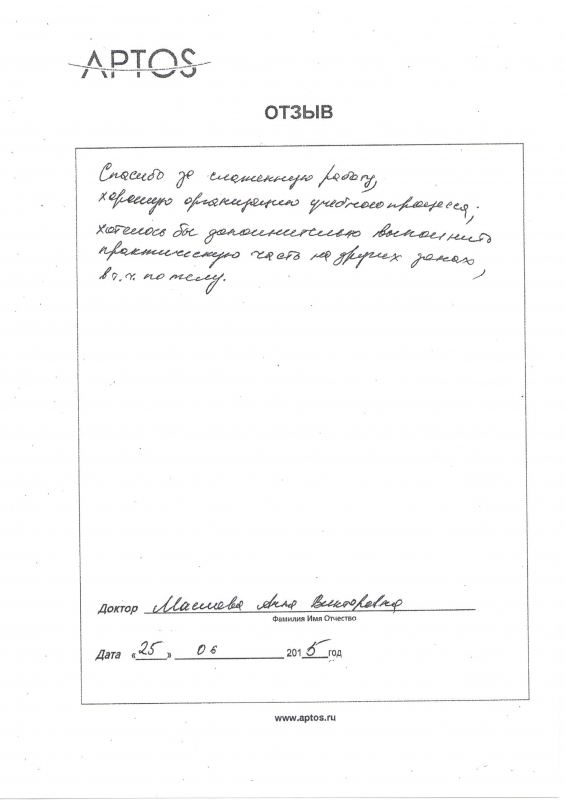 APTOS
ОТЗЫВ
Спасибо за слаженную работу,
хорошую организацию учебного процесса.
Хотелось бы дополнительно выполнить
практическую часть на других зонах,
в т.ч. по телу.
Доктор Анна Викторовна
Фамилия Имя Отчество
Дата «25» 06 2015 год
www.aptos.ru